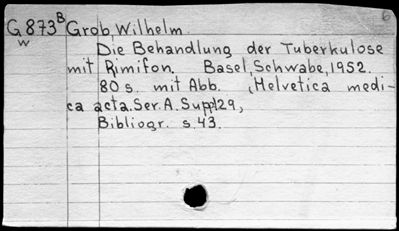 6
G 873 B Grob, Wilhelm.
w
Die Behandlung der Tuberkulose
mit Rimifon. Basel, Schwabe, 1952.
80 s. mit Abb. (Helvetica medi-
ca acta. Ser. A. Suppl 29,
Bibliogr. s. 43.